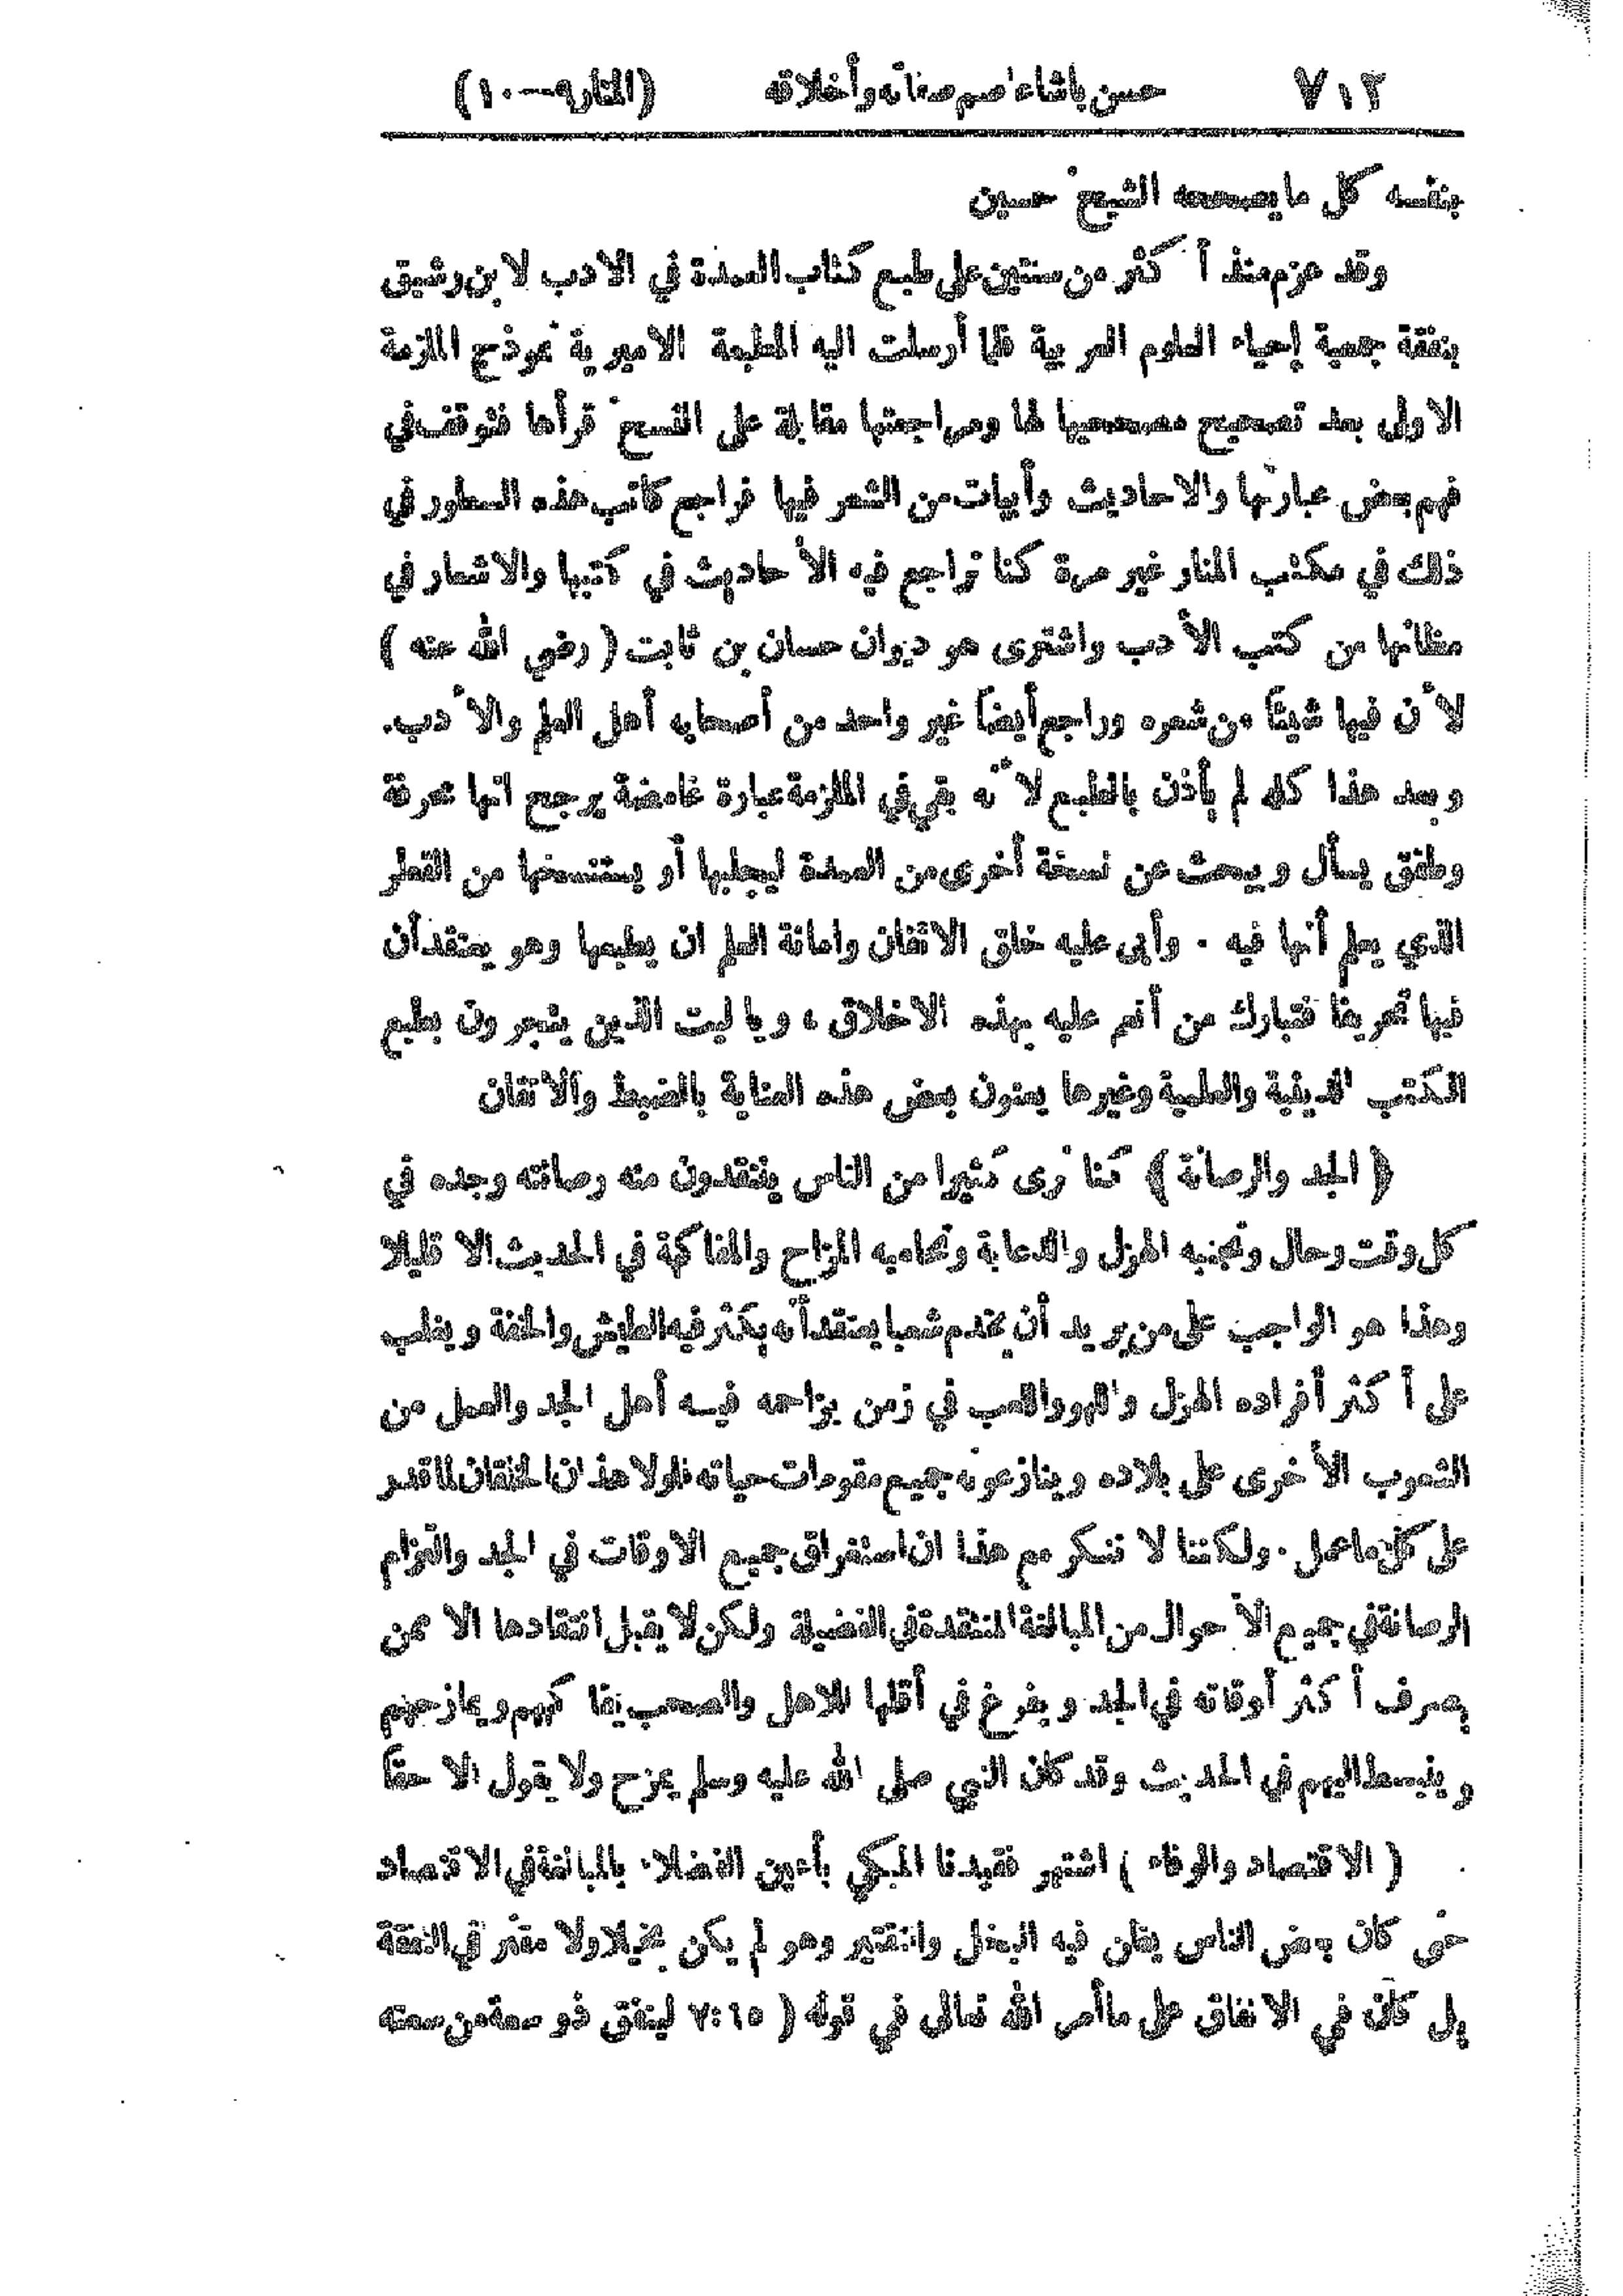 ٧١٢ حسن باشا عاصم صفاته وأخلاقه (المنار ٩—١٠)
بنفسه كل ما يصححه الشيخ حسين
وقد عزم منذ أكثر من سنتين على طبع كتاب العمدة في الادب لابن رشيق
بنفقة جمعية إحياء العلوم العربية فلما أرسلت اليه المطبعة الاميرية نموذج الملزمة
الاولى بعد تصحيح مصححيها لها ومراجعتها مقابلة على النسخ قرأها فتوقف في
فهم بعض عبارتها والاحاديث وأبيات من الشعر فيها فراجع كاتب هذه السطور في
ذلك في مكتب المنار غير مرة كنا نراجع فيه الأحاديث في كتبها والاشعار في
مظانها من كتب الأدب واشترى هو ديوان حسان بن ثابت ( رضي الله عنه )
لأن فيها شيئاً من شعره وراجع أيضاً غير واحد من أصحابه أهل العلم والأدب.
وبعد هذا كله لم يأذن بالطبع لأنه بقي في الملزمة عبارة غامضة يرجح انها محرفة
وطفق يسأل ويبحث عن نسخة أخرى من العمدة ليجلبها أو يستنسخها من القطر
الذي يعلم أنها فيه . وأبى عليه خلق الاتقان وامانة العلم ان يطبعها وهو يعتقد أن
فيها تحريفا فتبارك من أنعم عليه بهذه الاخلاق ، ويا ليت الذين يتجرون بطبع
الكتب الدينية والعلمية وغيرها يعنون بعض هذه العناية بالضبط والاتقان
( الجد والرصانة ) كنا نرى كثيرا من الناس ينتقدون منه رصانته وجده في
كل وقت وحال وتجنبه الهزل والدعابة وتحاميه المزاح والمفاكهة في الحديث الا قليلا
وهذا هو الواجب على من يريد أن يخدم شعبا يعتقد أنه يكثر فيه الطيش والخفة ويغلب
على أكثر أفراده الهزل واللهو واللعب في زمن يزاحمه فيه أهل الجد والعمل من
الشعوب الأخرى على بلاده وينازعونه جميع مقومات حياته فلولا هذان الخلقان لما قدر
على كل ما عمل . ولكننا لا ننكر مع هذا ان استغراق جميع الاوقات في الجد والتزام
الرصانة في جميع الأحوال من المبالغة المنتقدة في الفضيلة ولكن لا يقبل انتقادها الا ممن
يصرف أكثر أوقاته في الجد ويفرغ في أقلها للاهل والصحب يفاكههم ويمازحهم
وينبسط اليهم في الحديث وقد كان النبي صلى الله عليه وسلم يمزح ولا يقول الا حقاً
( الاقتصاد والوفاء ) اشتهر فقيدنا المبكي بأعين الفضلاء بالمبالغة في الاقتصاد
حتى كان بعض الناس يظن فيه البخل والتقتير وهو لم يكن بخيلا ولا مقتر في النفقة
بل كان في الانفاق على ما أمر الله تعالى في قوله ( ٦٥:٧ لينفق ذو سعة من سعته